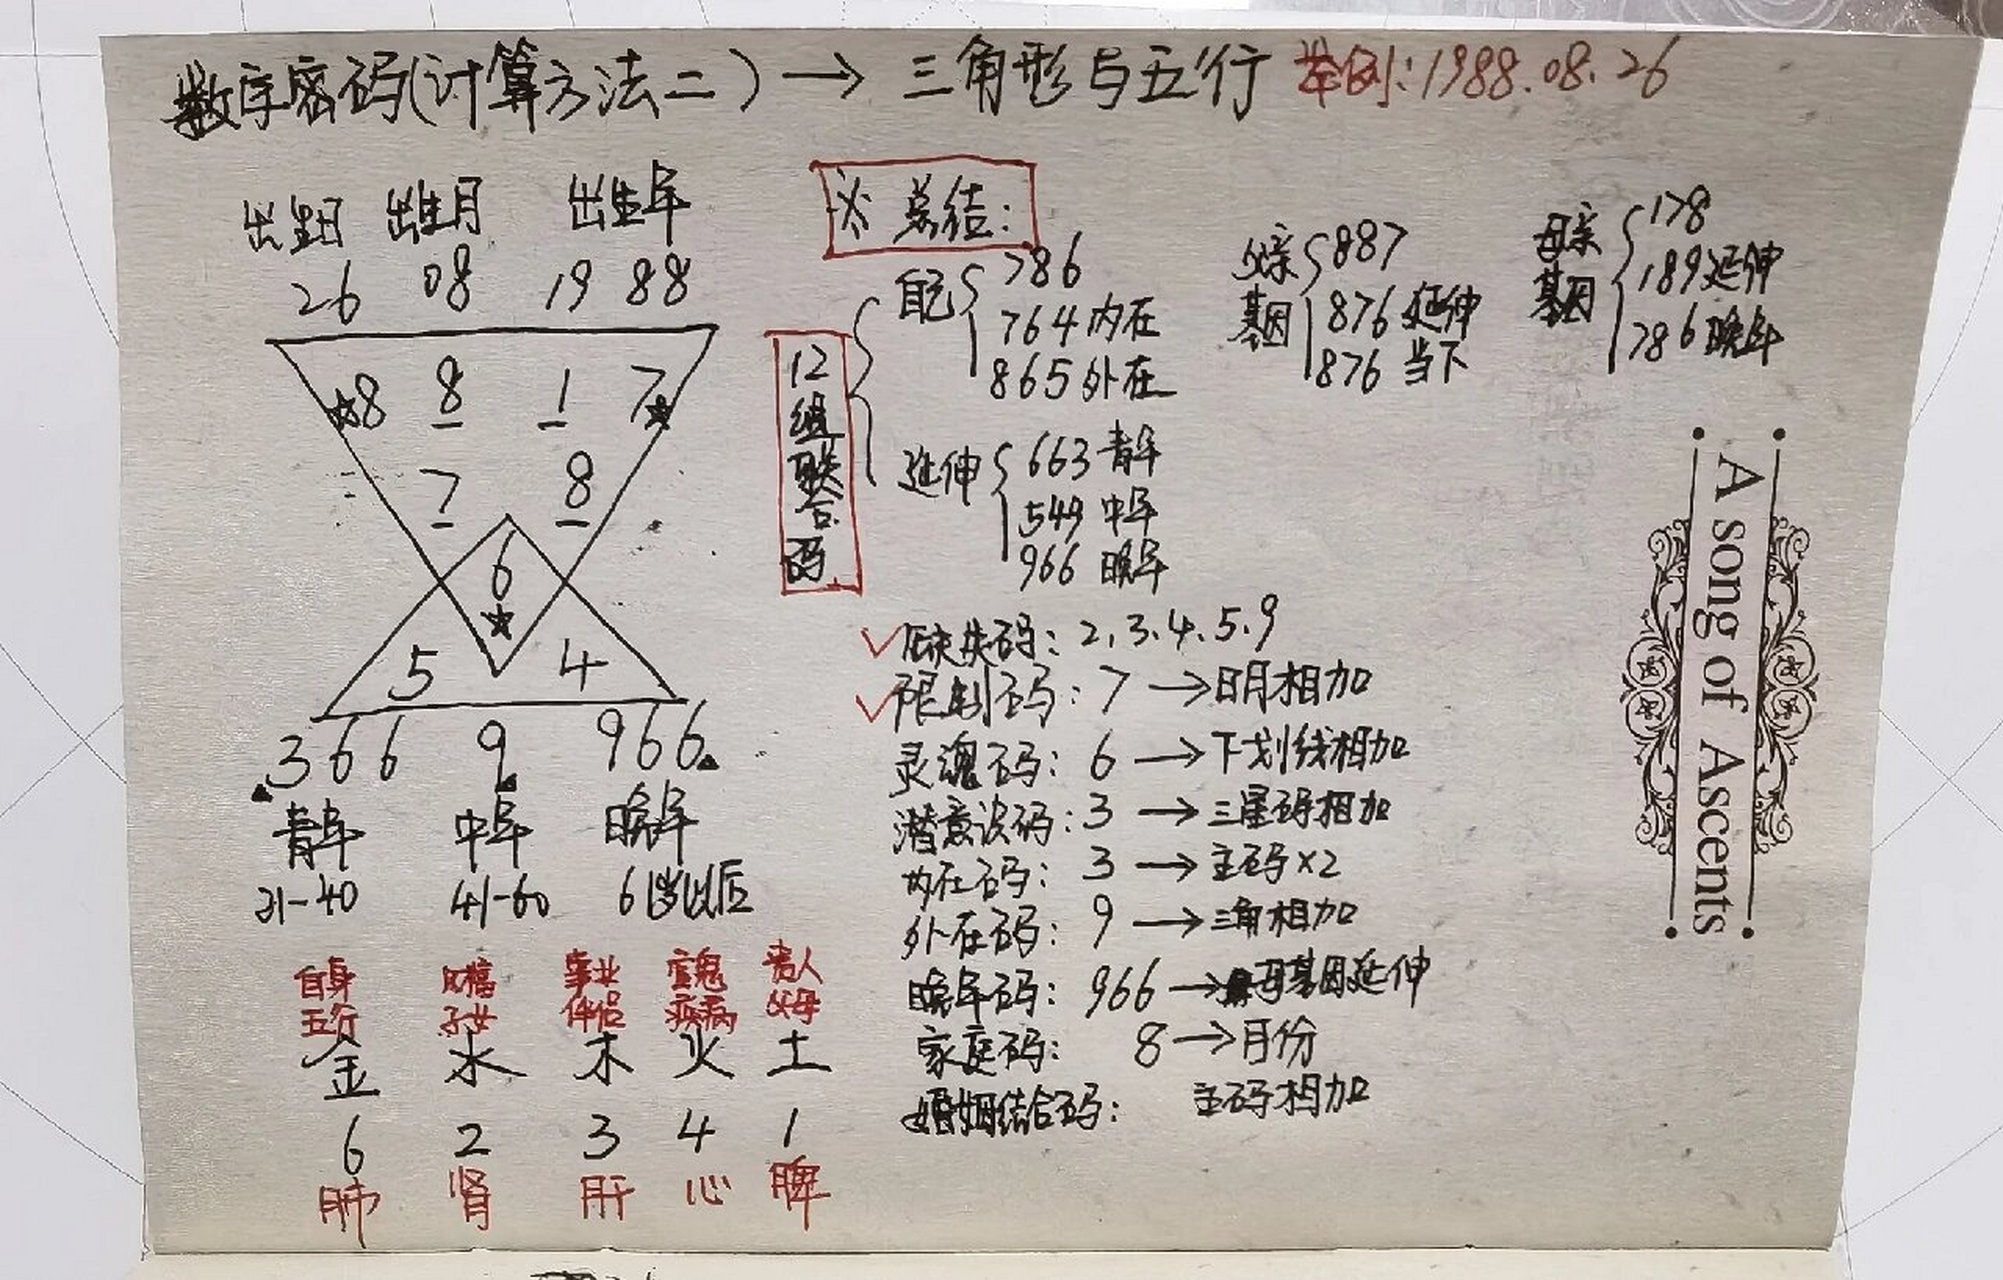 数字密码(计算方法二) → 三角形与五行 举例:1988.08.26
出生日 出生月 出生年
26 08 19 88
☆8 8 1 7☆
7 8
6
☆
5 4
366 9 966
青年 中年 晚年
21-40 41-60 61岁以后
自身 风格 事业 官鬼 贵人
五行 子女 伴侣 疾病 父母
金 水 木 火 土
6 2 3 4 1
肺 肾 肝 心 脾
※ 总结:
12组联合码
自己 786
764内在
865外在
延伸 663青年
549 中年
966 晚年
父亲基因 887
876 延伸
876 当下
母亲基因 178
189延伸
786晚年
✓ 缺失码: 2.3.4.5.9
✓ 限制码: 7 → 日月相加
灵魂码: 6 → 下划线相加
潜意识码: 3 → 三星码相加
内在码: 3 → 主码×2
外在码: 9 → 三角相加
晚年码: 966 → 母基因延伸
家庭码: 8 → 月份
婚姻结合码: 主码相加
A song of Ascents